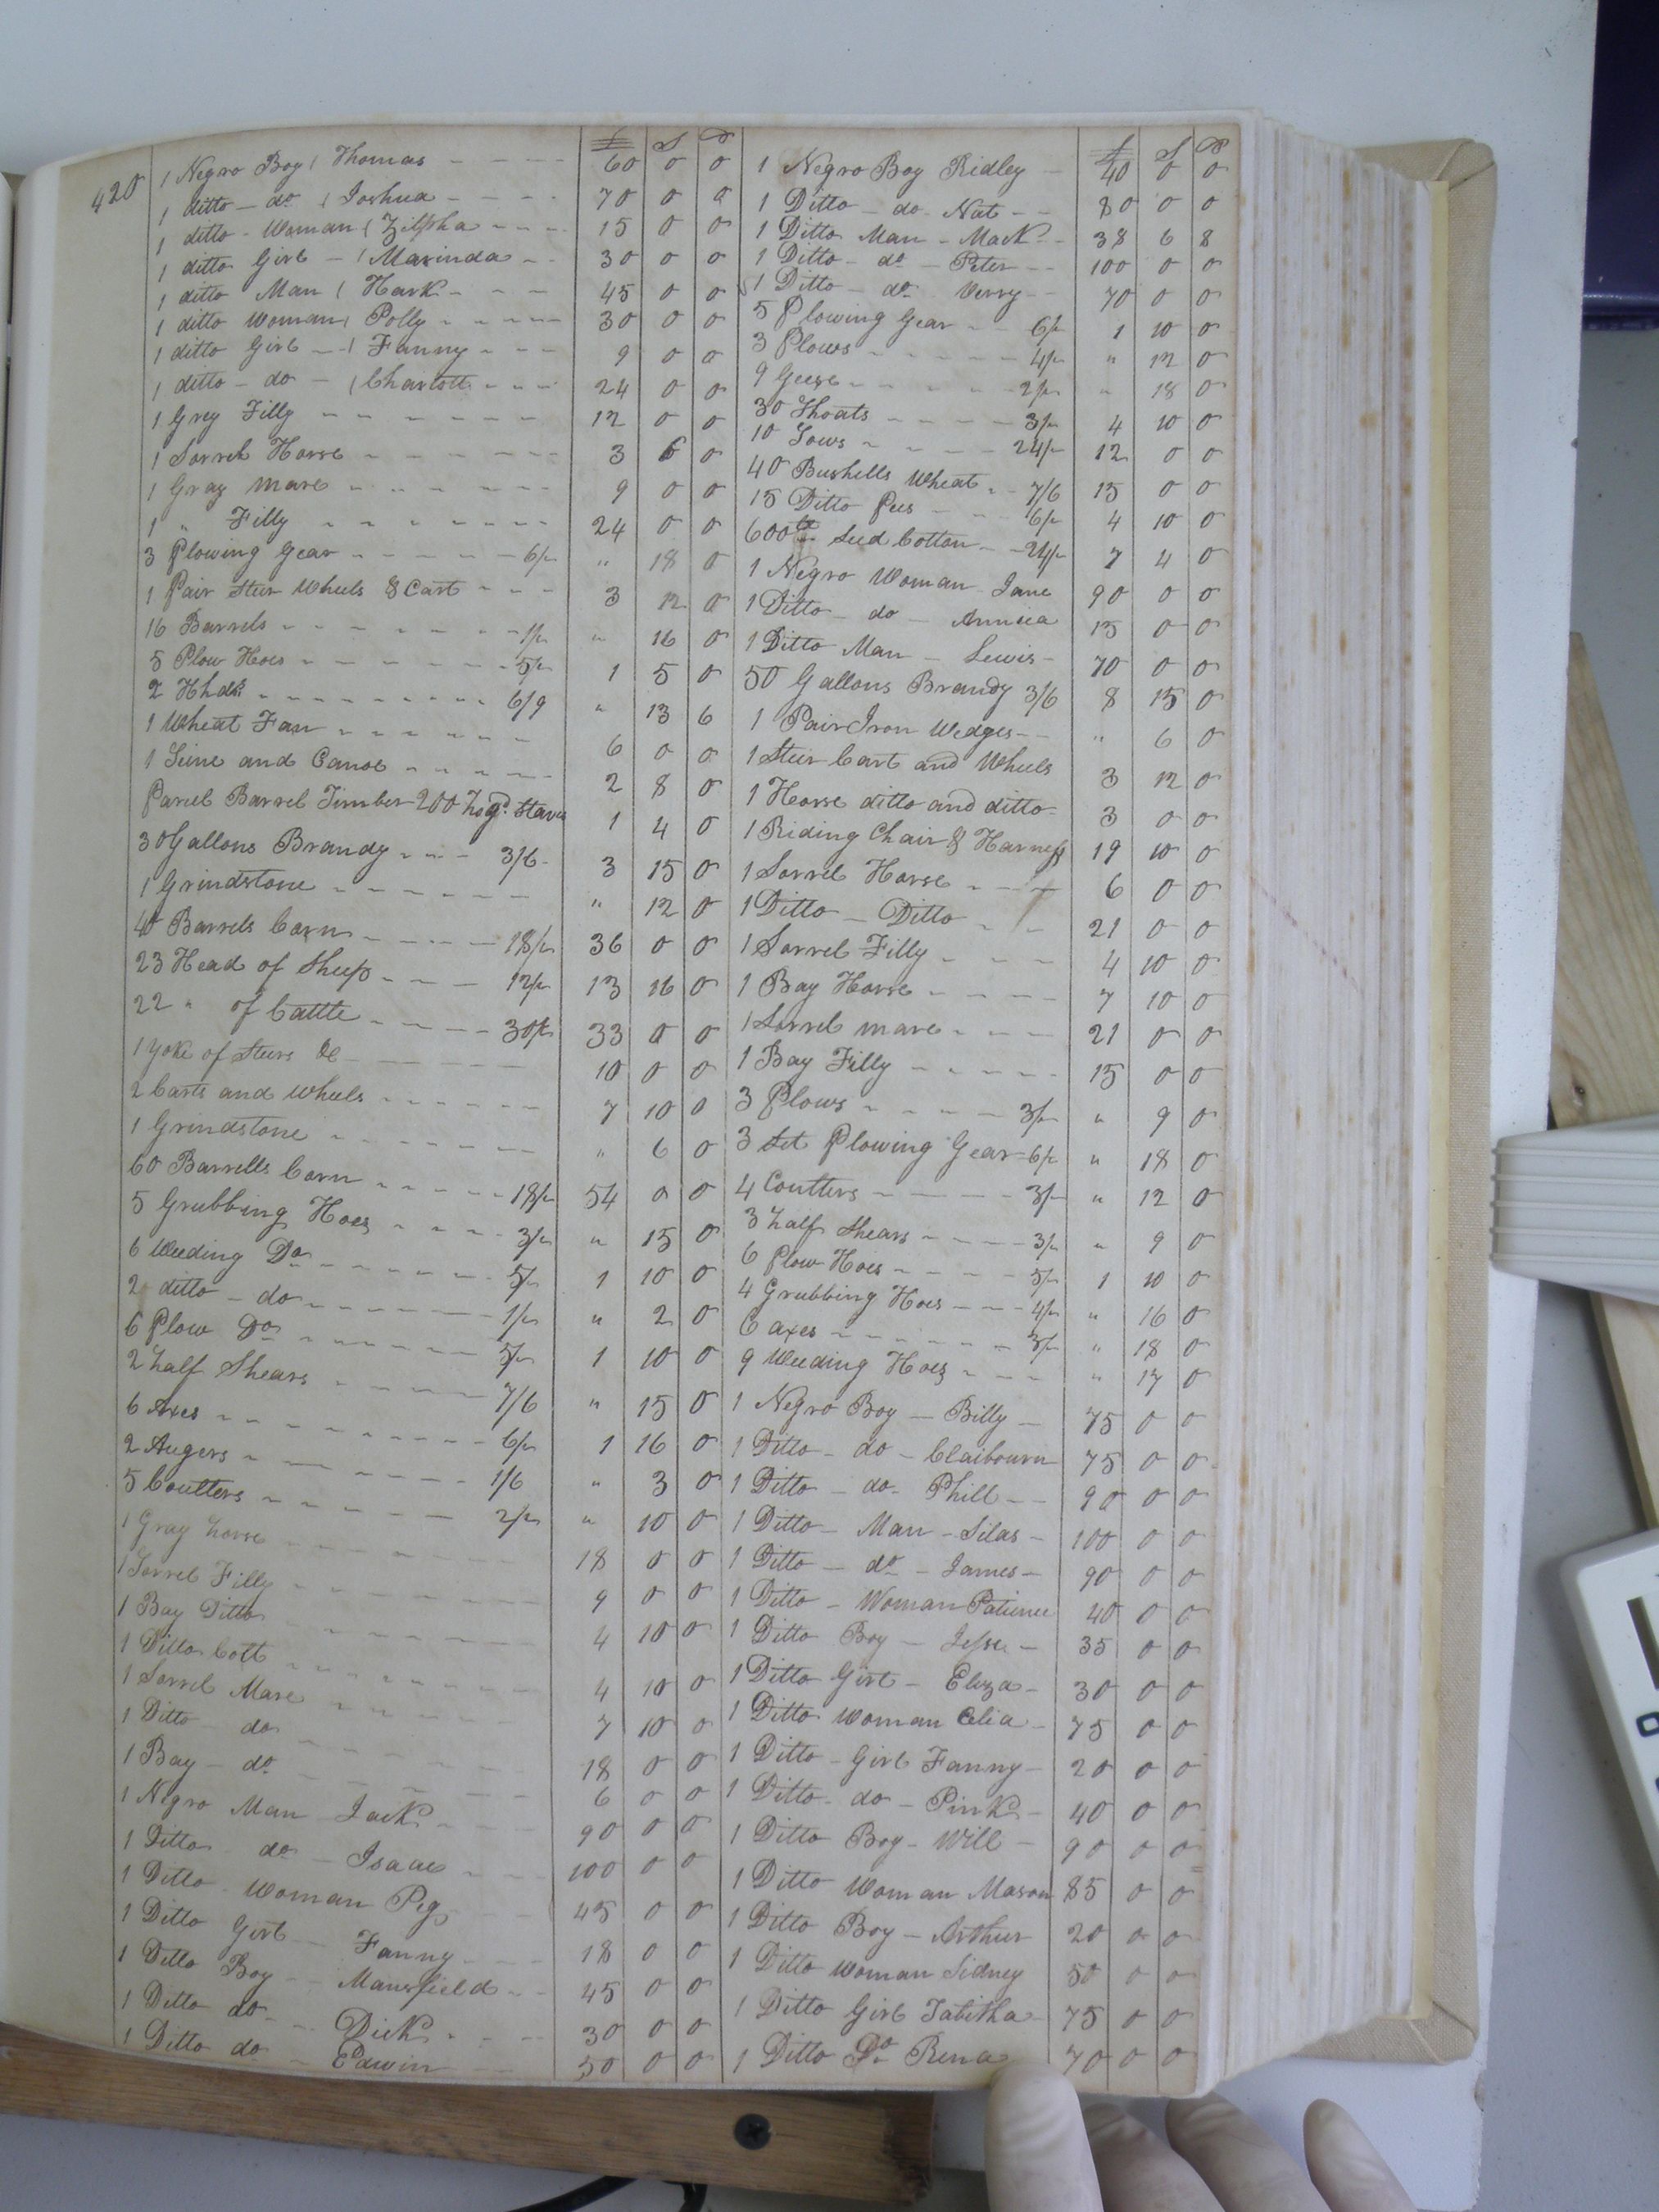 420
£ S D
1 Negro Boy ( Thomas 60 0 0
1 ditto - do ( Joshua 70 0 0
1 ditto - Woman ( Zilpha 15 0 0
1 ditto Girl - ( Marinda 30 0 0
1 ditto Man ( Hark 45 0 0
1 ditto Woman ( Polly 30 0 0
1 ditto Girl - ( Fanny 9 0 0
1 ditto - do - ( Charlott 24 0 0
1 Grey Filly 12 0 0
1 Sorrel Horse 3 6 0
1 Gray Mare 9 0 0
1 " Filly 24 0 0
3 Plowing Gear 6/- " 18 0
1 Pair Steer Wheels & Cart 3 12 0
16 Barrels 1/- " 16 0
5 Plow Hoes 5/- 1 5 0
2 Hhds. 6/9 " 13 6
1 Wheat Fan 6 0 0
1 Seine and Canoe 2 8 0
Parcel Barrel Timber 200 hogd. Staves 1 4 0
30 Gallons Brandy 3/6 3 15 0
1 Grindstone " 12 0
40 Barrels Corn 18/- 36 0 0
23 Head of Sheep 12/- 13 16 0
22 " of Cattle 30/- 33 0 0
1 Yoke of Steers &c 10 0 0
2 Carts and Wheels 7 10 0
1 Grindstone " 6 0
60 Barrells Corn 18/- 54 0 0
5 Grubbing Hoes 3/- " 15 0
6 Weeding Do 5/- 1 10 0
2 ditto - do 1/- " 2 0
6 Plow Do 5/- 1 10 0
2 half Shears 7/6 " 15 0
6 Axes 6/- 1 16 0
2 Augers 1/6 " 3 0
5 Coulters 2/- " 10 0
1 Gray horse 18 0 0
1 Sorrel Filly 9 0 0
1 Bay Ditto 4 10 0
1 Ditto Colt 4 10 0
1 Sorrel Mare 7 10 0
1 Ditto do 18 0 0
1 Bay - do 6 0 0
1 Negro Man Jack 90 0 0
1 Ditto do - Isaac 100 0 0
1 Ditto Woman Peg 45 0 0
1 Ditto Girl Fanny 18 0 0
1 Ditto Boy Mansfield 45 0 0
1 Ditto do Dick 30 0 0
1 Ditto do Edwin 50 0 0
£ S D
1 Negro Boy Ridley 40 0 0
1 Ditto - do - Nat 80 0 0
1 Ditto Man - Mack 38 6 8
1 Ditto - do - Peter 100 0 0
1 Ditto - do Verry 70 0 0
5 Plowing Gear 6/- 1 10 0
3 Plows 4/- " 12 0
9 Geese 2/- " 18 0
30 Shoats 3/- 4 10 0
10 Sows 24/- 12 0 0
40 Bushells Wheat 7/6 15 0 0
15 Ditto Pees 6/- 4 10 0
600 lb Seed Cotton 24/- 7 4 0
1 Negro Woman Jane 90 0 0
1 Ditto - do - Annica 15 0 0
1 Ditto Man - Lewis 70 0 0
50 Gallons Brandy 3/6 8 15 0
1 Pair Iron Wedges " 6 0
1 Steer Cart and Wheels 3 12 0
1 Horse ditto and ditto 3 0 0
1 Riding Chair & Harness 19 10 0
1 Sorrel Horse 6 0 0
1 Ditto - Ditto 21 0 0
1 Sorrel Filly 4 10 0
1 Bay Horse 7 10 0
1 Sorrel mare 21 0 0
1 Bay Filly 15 0 0
3 Plows 3/- " 9 0
3 Set Plowing Gear 6/- " 18 0
4 Coulters 3/- " 12 0
3 half Shears 3/- " 9 0
6 Plow Hoes 5/- 1 10 0
4 Grubbing Hoes 4/- " 16 0
6 axes 3/- " 18 0
9 Weeding Hoes " 17 0
1 Negro Boy - Billy 75 0 0
1 Ditto - do - Claibourn 75 0 0
1 Ditto - do - Phill 90 0 0
1 Ditto - Man - Silas 100 0 0
1 Ditto - do - James 90 0 0
1 Ditto - Woman Patience 40 0 0
1 Ditto Boy - Jesse 35 0 0
1 Ditto Girl - Eliza 30 0 0
1 Ditto Woman Celia 75 0 0
1 Ditto - Girl Fanny 20 0 0
1 Ditto - do - Pink 40 0 0
1 Ditto Boy - Will 90 0 0
1 Ditto Woman Mason 85 0 0
1 Ditto Boy - Arthur 20 0 0
1 Ditto Woman Sidney 50 0 0
1 Ditto Girl Tabitha 75 0 0
1 Ditto Do Rena 70 0 0